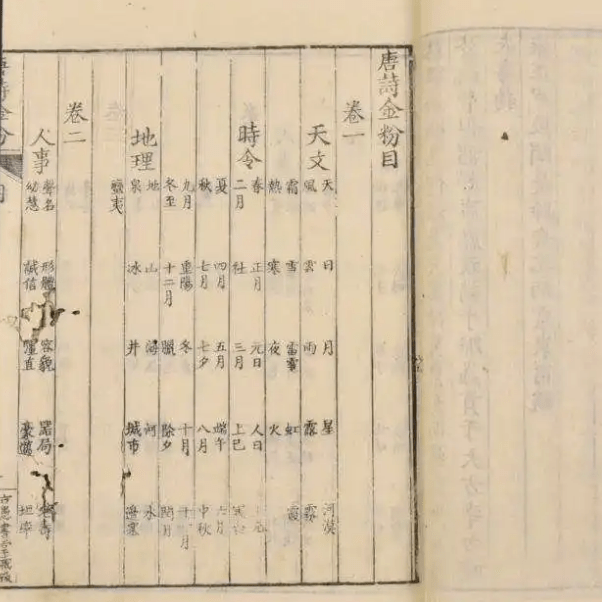 唐詩金粉目
卷一
天文 天 日 月 星 河漢
風 雲 雨 露 霧
霜 雪 雷電 虹 霞
熱 寒 夜 火
時令 春 正月 元日 人日 上元
二月 社 三月 上巳 寒食
夏 四月 五月 端午 六月
秋 七月 七夕 八月 中秋
九月 重陽 冬 十月 十一月
冬至 十二月 臘 除夕 閏月
地理 地 山 海 河 水
泉 冰 井 城市 邊塞
蠻夷
卷二
人事 聲名 形體 容貌 器局
幼慧 誠信 直 豪 坦率
唐詩金粉 目